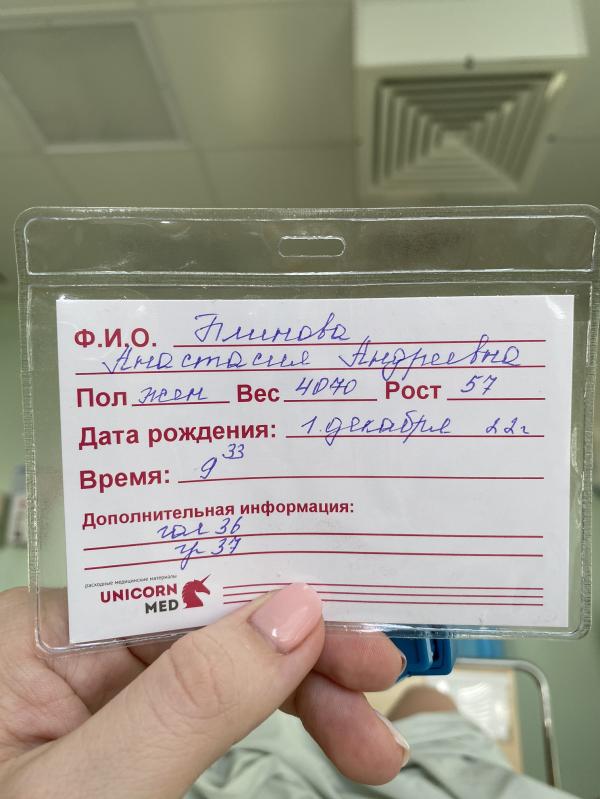 Ф.И.О. Блинова
Анастасия Андреевна
Пол жен Вес 4070 Рост 57
Дата рождения: 1 декабря 22г
Время: 9 33
Дополнительная информация:
гол 36
гр 37
расходные медицинские материалы
UNICORN
MED